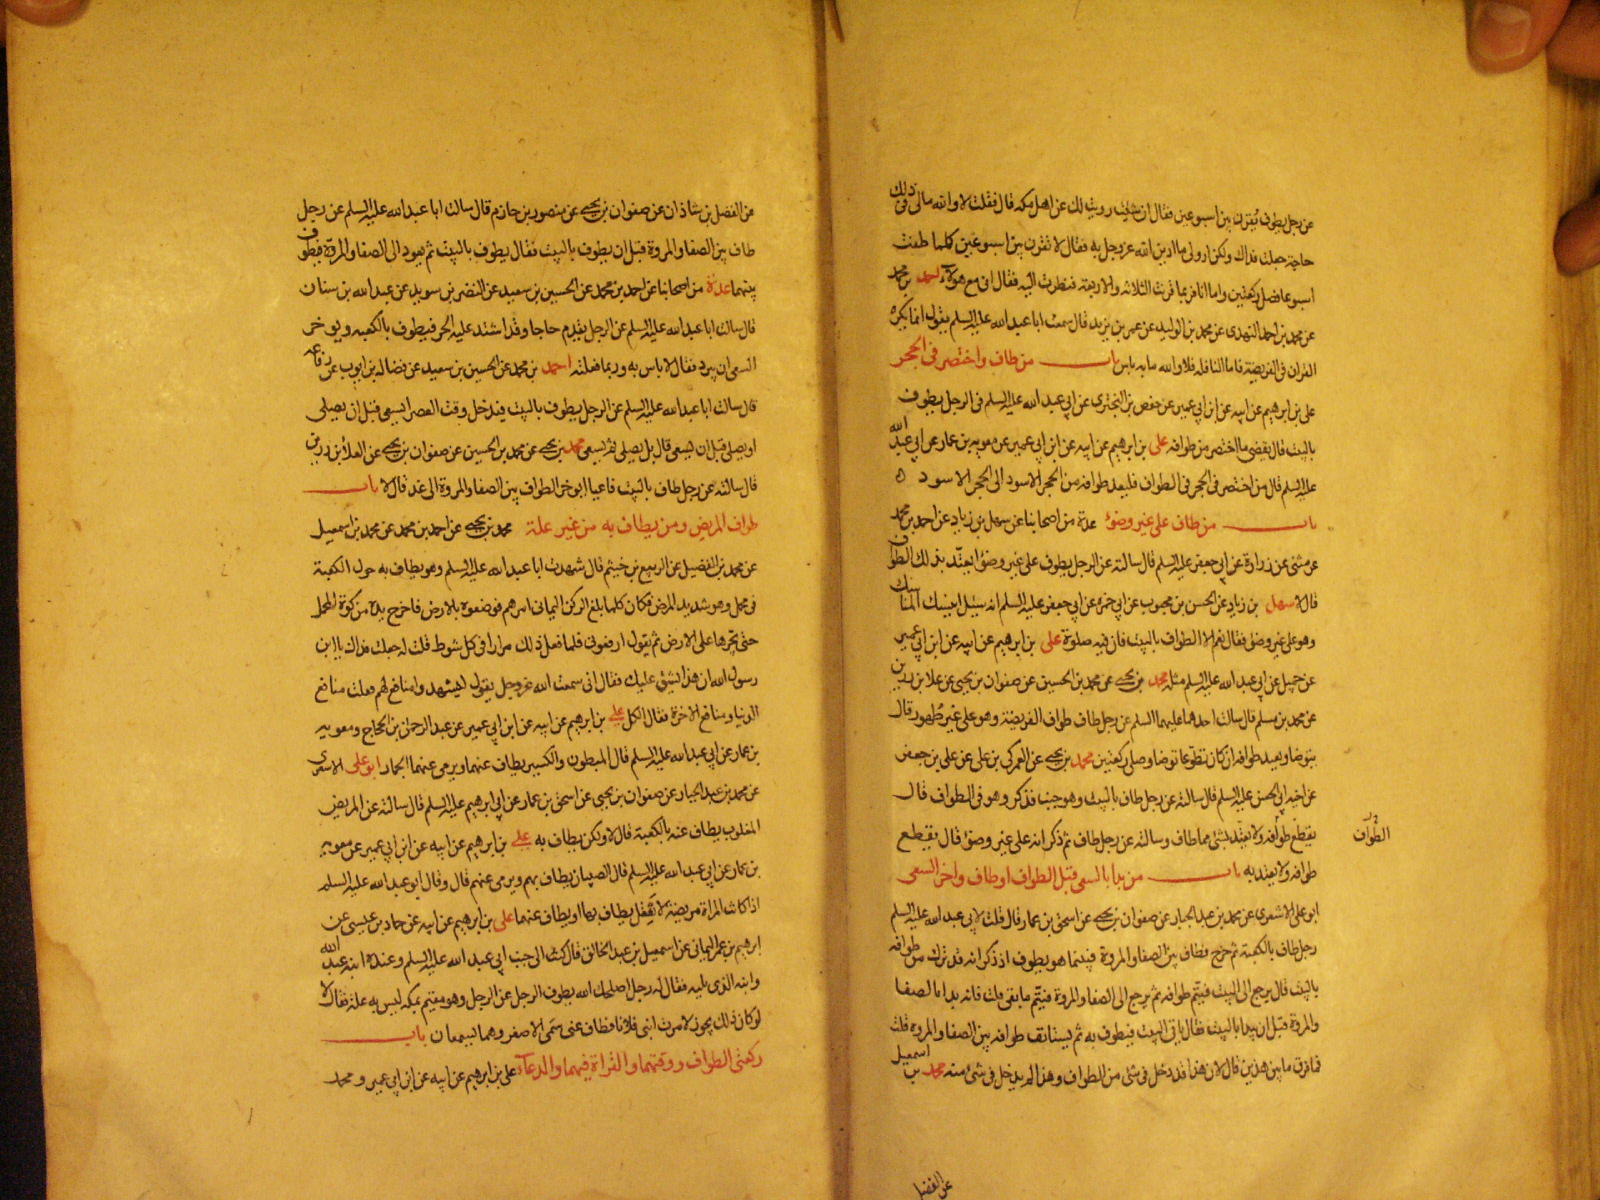 عن رجل يطوف يقرن بين اسبوعين فقال ان شئت رويت لك عن اهل مكه قال فقلت لا والله مالى فى ذلك
حاجة جعلت فداك ولكن ارو لى ما ادين الله عز وجل به فقال لا تقرن بين اسبوعين كلما طفت
اسبوعا فصل ركعتين واما انا فربما قرنت الثلاثه والاربعة فنظرت اليه فقال انى مع هولاء احمد بن محمد
عن محمد بن احمد النهدى عن محمد بن الوليد عن عمر بن يزيد قال سمعت ابا عبد الله عليه السلم يقول انما يكره
القران فى الفريضة فاما النافله فلا والله ما به باس باب من طاف واختصر فى الحجر
على بن ابرهيم عن ابيه عن ابن ابي عمير عن حفص بن البخترى عن ابي عبد الله عليه السلم فى الرجل يطوف
بالبيت قال يقضى ما اختصر من طوافه على بن ابرهيم عن ابيه عن ابن ابي عمير عن معويه بن عمار عن ابي عبد الله
عليه السلم قال من اختصر فى الحجر فى الطواف فليعد طوافه من الحجر الاسود الى الحجر الاسود
باب من طاف على غير وضوء عدة من اصحابنا عن سهل بن زياد عن احمد بن محمد
عن مثنى عن زرارة عن ابي جعفر عليه السلم قال سالته عن الرجل يطوف على غير وضوء ايعتد بذلك الطواف
قال لا سهل بن زياد عن الحسن بن محبوب عن ابي حمزه عن ابي جعفر عليه السلم انه سئل اينسك المناسك
وهو على غير وضوء فقال نعم الا الطواف بالبيت فان فيه صلوة على بن ابرهيم عن ابيه عن ابن ابي عمير
عن جميل عن ابي عبد الله عليه السلم مثله محمد بن يحيى عن محمد بن الحسين عن صفوان بن يحيى عن علا بن رزين
عن محمد بن مسلم قال سالت احدهما عليهما السلم عن رجل طاف طواف الفريضة وهو على غير طهور قال
يتوضا ويعيد طوافه ان كان تطوعا توضا وصلى ركعتين محمد بن يحيى عن العمركي بن على عن على بن جعفر
عن اخيه ابي الحسن عليه السلم قال سالته عن رجل طاف بالبيت وهو جنب فذكر وهو فى الطواف قال
يقطع طوافه ولا يعتد بشئ مما طاف وسالته عن رجل طاف ثم ذكر انه على غير وضوء قال يقطع
الطواف
طوافه ولا يعتد به باب من بدا بالسعى قبل الطواف او طاف واخر السعى
ابو على الاشعرى عن محمد بن عبد الجبار عن صفوان بن يحيى عن اسحق بن عمار قال قلت لابي عبد الله عليه السلم
رجل طاف بالكعبة ثم خرج فطاف بين الصفا والمروة فبينما هو يطوف اذ ذكر انه قد ترك من طوافه
بالبيت قال يرجع الى البيت فيتم طوافه ثم يرجع الى الصفا والمروة فيتم ما بقى قلت فانه بدا بالصفا
والمروة قبل ان يبدا بالبيت فقال ياتى البيت فيطوف به ثم يستانف طوافه بين الصفا والمروه قلت
فما فرق ما بين هذين قال لان هذا قد دخل فى شئ من الطواف وهذا لم يدخل فى شئ منه محمد بن اسمعيل
عن الفضل
عن الفضل بن شاذان عن صفوان بن يحيى عن منصور بن حازم قال سالت ابا عبد الله عليه السلم عن رجل
طاف بين الصفا والمروة قبل ان يطوف بالبيت فقال يطوف بالبيت ثم يعود الى الصفا والمروة فيطوف
بينهما عدة من اصحابنا عن احمد بن محمد عن الحسين بن سعيد عن النضر بن سويد عن عبد الله بن سنان
قال سالت ابا عبد الله عليه السلم عن الرجل يقدم حاجا وقد اشتد عليه الحر فيطوف بالكعبه ويوخر
السعى ان يبرد فقال لا باس به وربما فعلته احمد بن محمد عن الحسين بن سعيد عن فضاله بن ايوب عن رفاعه
قال سالت ابا عبد الله عليه السلم عن الرجل يطوف بالبيت فيدخل وقت العصر ايسعى قبل ان يصلى
او يصلى قبل ان يسعى قال بل يصلى ثم يسعى محمد بن يحيى عن محمد بن الحسين عن صفوان بن يحيى عن العلاء بن رزين
قال سالته عن رجل طاف بالبيت فاعيا ايوخر الطواف بين الصفا والمروة الى غد قال لا باب
طواف المريض ومن يطاف به من غير علة محمد بن يحيى عن احمد بن محمد عن محمد بن اسمعيل
عن محمد بن الفضيل عن الربيع بن خيثم قال شهدت ابا عبد الله عليه السلم وهو يطاف به حول الكعبة
فى محمل وهو شديد المرض فكان كلما بلغ الركن اليمانى امرهم فوضعوه بالارض فاخرج يده من كوة المحمل
حتى يجرها على الارض ثم يقول ارفعونى فلما فعل ذلك مرارا فى كل شوط قلت له جعلت فداك يا ابن
رسول الله ان هذا يشق عليك فقال انى سمعت الله عز وجل يقول ليشهدوا منافع لهم فقلت منافع
الدنيا و منافع الاخرة فقال الكل على بن ابرهيم عن ابيه عن ابن ابي عمير عن عبد الرحمن بن الحجاج ومعويه
بن عمار عن ابي عبد الله عليه السلم قال المبطون والكسير يطاف عنهما ويرمى عنهما الجمار ابو على الاشعرى
عن محمد بن عبد الجبار عن صفوان بن يحيى عن اسحق بن عمار عن ابي ابرهيم عليه السلم قال سالته عن المريض
المغلوب يطاف عنه بالكعبة قال لا ولكن يطاف به على بن ابرهيم عن ابيه عن ابن ابي عمير عن معويه
بن عمار عن ابي عبد الله عليه السلم قال الصبيان يطاف بهم ويرمى عنهم قال وقال ابو عبد الله عليه السلم
اذا كانت المراة مريضة لا تعقل يطاف بها او يطاف عنها على بن ابرهيم عن ابيه عن حماد بن عيسى عن
ابرهيم بن عمر اليمانى عن اسمعيل بن عبد الخالق قال كنت الى جنب ابي عبد الله عليه السلم وعنده ابنه عبد الله
وابنه الذى يليه فقال له رجل اصلحك الله يطوف الرجل عن الرجل وهو مقيم بمكه ليس به علة فقال لا
لو كان ذلك يجوز لامرت ابنى فلانا فطاف عنى سمى الاصغر وهما يسمعان باب
ركعتى الطواف ووقتهما والقراة فيهما والدعاء على بن ابرهيم عن ابيه عن ابن ابي عمير و محمد